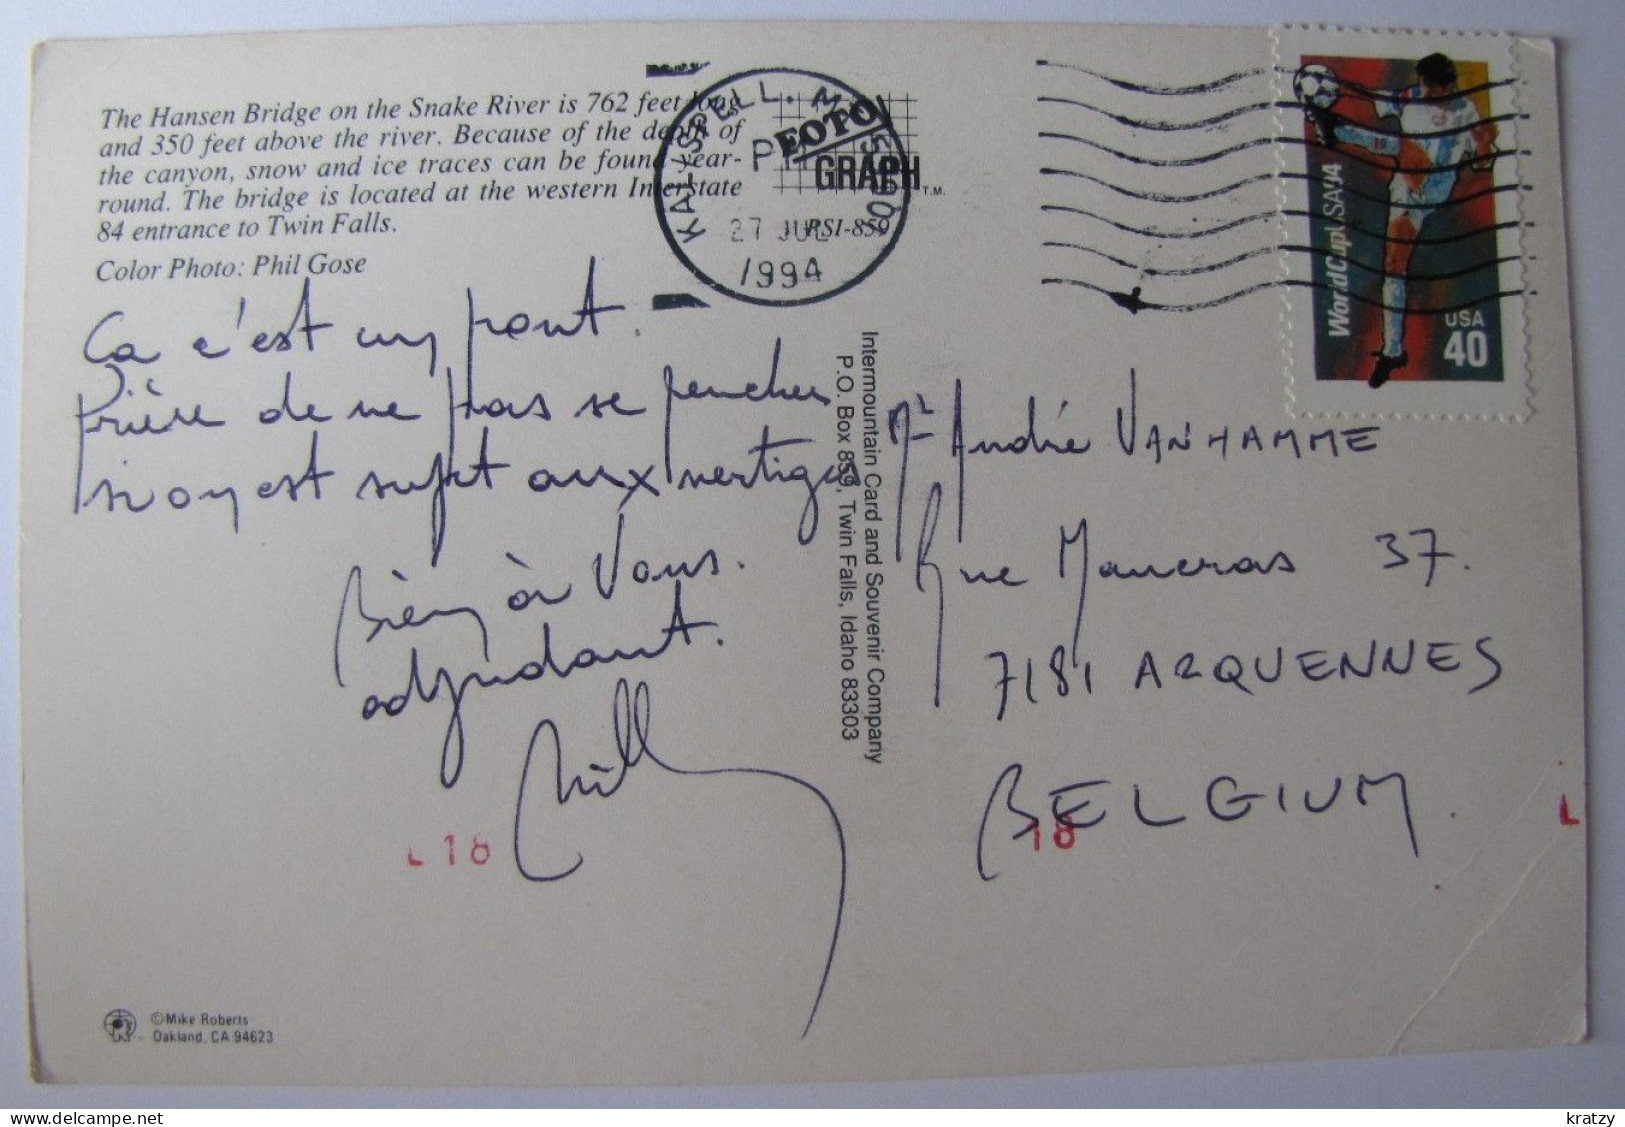 The Hansen Bridge on the Snake River is 762 feet long
and 350 feet above the river. Because of the depth of
the canyon, snow and ice traces can be found year-
round. The bridge is located at the western Interstate
84 entrance to Twin Falls.
Color Photo: Phil Gose
KALISPELL, M
PM
27 JUL
1994
FOTO
GRAPH T.M.
RSI-859
WorldCupUSA94
USA
40
Ça c'est un pont.
Prière de ne pas se pencher
si on est sujet aux vertiges
Bien à Vous.
adjudant.
Intermountain Card and Souvenir Company
P.O. Box 859, Twin Falls, Idaho 83303
Mr André VANHAMME
Rue 37.
7181 ARQUENNES
BELGIUM.
L 18
18
L
©Mike Roberts
Oakland, CA 94623
kratzy